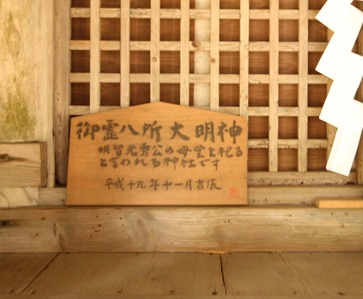 御霊八所大明神
明智光秀公の母堂を祀る
といわれる神社です
平成十九年十一月吉辰